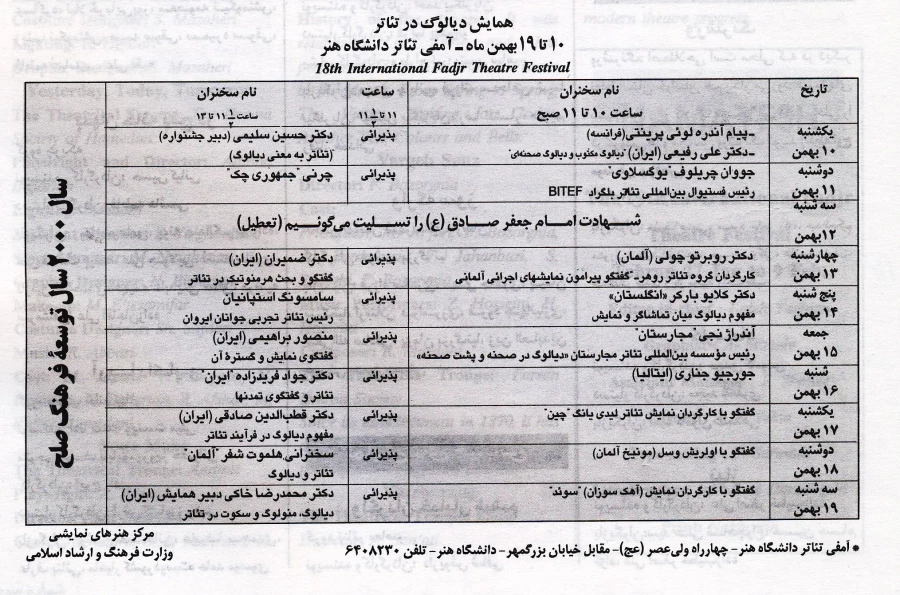 همایش دیالوگ در تئاتر
۱۰ تا ۱۹ بهمن ماه ـ آمفی تئاتر دانشگاه هنر
18th International Fadjr Theatre Festival
تاریخ نام سخنران ساعت نام سخنران
ساعت ۱۰ تا ۱۱ صبح ۱۱ تا ۱۱ ۱/۲ ساعت ۱۱ ۱/۲ تا ۱۳
یکشنبه ـ پیام آندره لوئی پرینتی (فرانسه) پذیرائی دکتر حسین سلیمی (دبیر جشنواره)
۱۰ بهمن ـ دکتر علی رفیعی (ایران) "دیالوگ مکتوب و دیالوگ صحنه‌ای" (تئاتر به معنی دیالوگ)
دوشنبه جووان چریلوف "یوگسلاوی" پذیرائی چرنی "جمهوری چک"
۱۱ بهمن رئیس فستیوال بین‌المللی تئاتر بلگراد BITEF
سه شنبه شهادت امام جعفر صادق (ع) را تسلیت می‌گوئیم (تعطیل)
۱۲ بهمن
چهارشنبه دکتر روبرتو چولی (آلمان) پذیرائی دکتر ضمیران (ایران)
۱۳ بهمن کارگردان گروه تئاتر روهر ـ گفتگو پیرامون نمایشهای اجرائی آلمانی گفتگو و بحث هرمنوتیک در تئاتر
پنج شنبه دکتر کلایو بارکر «انگلستان» پذیرائی سامسونگ استپانیان
۱۴ بهمن مفهوم دیالوگ میان تماشاگر و نمایش رئیس تئاتر تجربی جوانان ایروان
جمعه آندراژ نجی "مجارستان" پذیرائی منصور براهیمی (ایران)
۱۵ بهمن رئیس مؤسسه بین‌المللی تئاتر مجارستان «دیالوگ در صحنه و پشت صحنه» گفتگوی نمایش و گستره آن
شنبه جورجیو جناری (ایتالیا) پذیرائی دکتر جواد فریدزاده "ایران"
۱۶ بهمن تئاتر و گفتگوی تمدنها
یکشنبه گفتگو با کارگردان نمایش تئاتر لیدی یانگ "چین" پذیرائی دکتر قطب‌الدین صادقی (ایران)
۱۷ بهمن مفهوم دیالوگ در فرآیند تئاتر
دوشنبه گفتگو با اولریش وسل (مونیخ آلمان) پذیرائی سخنرانی هلموت شفر "آلمان"
۱۸ بهمن تئاتر و دیالوگ
سه شنبه گفتگو با کارگردان نمایش (آهک سوزان) "سوئد" پذیرائی دکتر محمدرضا خاکی دبیر همایش (ایران)
۱۹ بهمن دیالوگ، منولوگ و سکوت در تئاتر
سال ۲۰۰۰ سال توسعهٔ فرهنگ صلح
* آمفی تئاتر دانشگاه هنر - چهارراه ولی‌عصر (عج) - مقابل خیابان بزرگمهر - دانشگاه هنر - تلفن ۶۴۰۸۲۳۰
مرکز هنرهای نمایشی
وزارت فرهنگ و ارشاد اسلامی